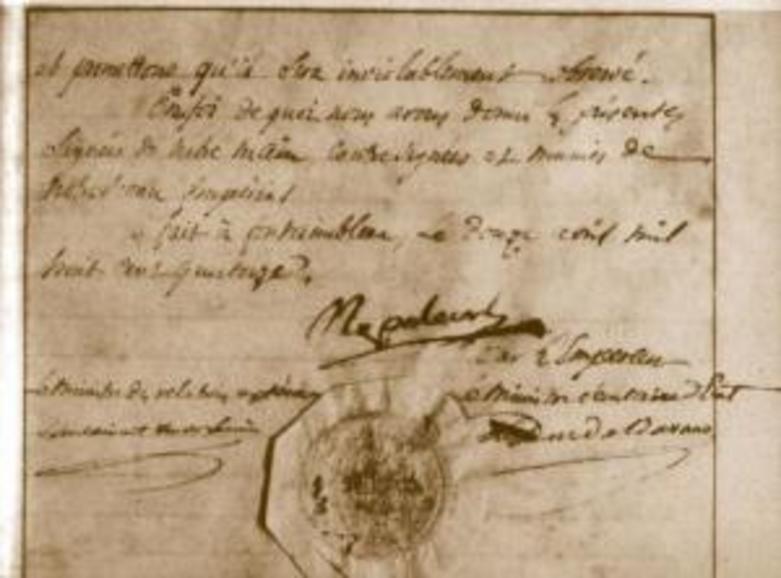 et promettons qu'il sera inviolablement observé.
En foi de quoi nous avons donné les présentes,
Signées de notre main Contresignées et munies de
notre Sceau Impérial
fait à fontainebleau, le Douze avril mil
huit cent quatorze.
Napoleon
Par l'Empereur
le Ministre des relations
le Ministre Secretaire d'Etat
Duc de Bassano